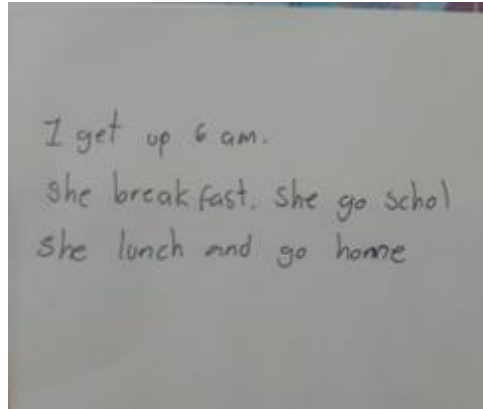 I get up 6 am.
She breakfast. She go schol
She lunch and go home